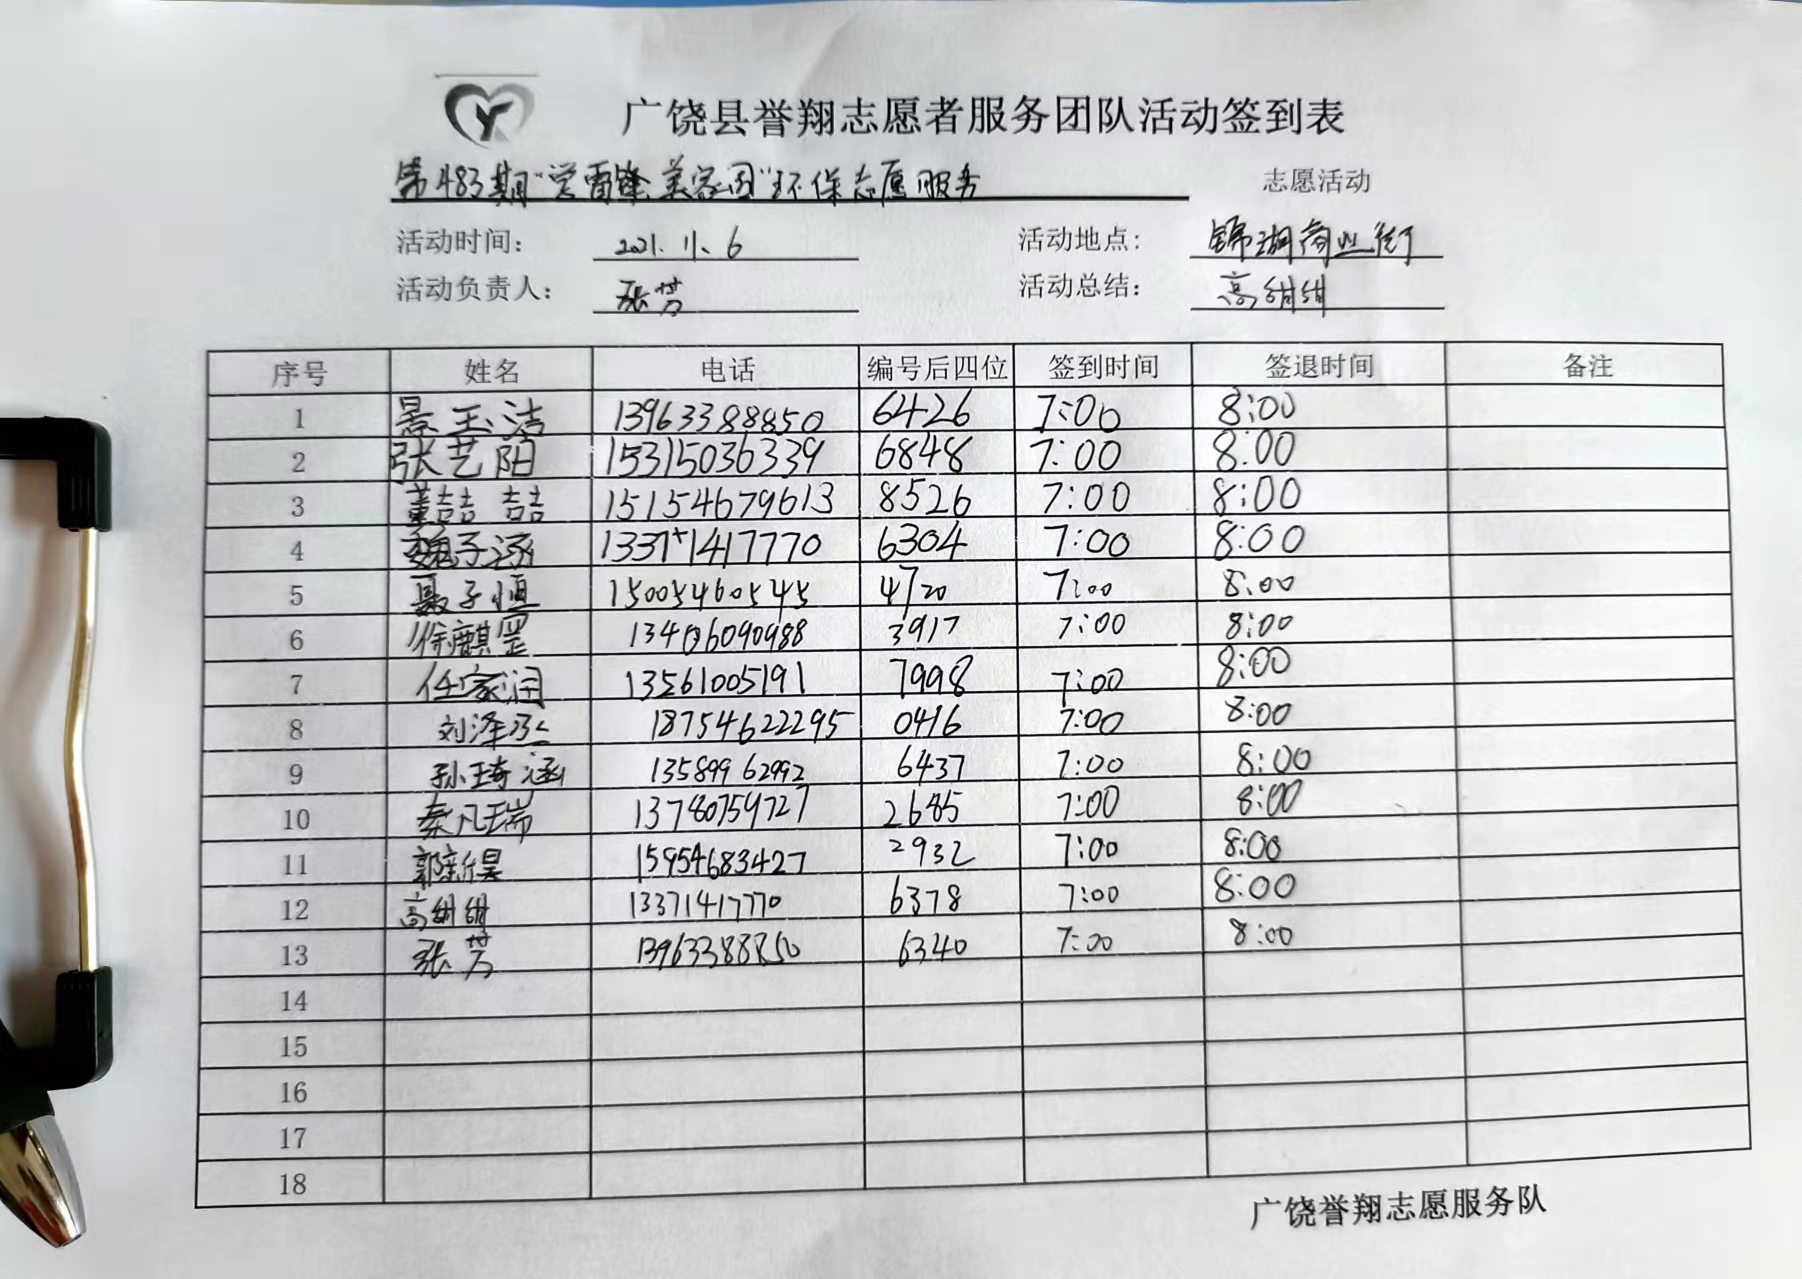 广饶县誉翔志愿者服务团队活动签到表
第483期"学雷锋 美容团"环保志愿服务 志愿活动
活动时间： 2021.11.6 活动地点： 锦湖商业街
活动负责人： 张芳 活动总结： 高甜甜
序号 姓名 电话 编号后四位 签到时间 签退时间 备注
1 景玉洁 13963388850 6426 7:00 8:00
2 张艺阳 15315036339 6848 7:00 8:00
3 董喆喆 15154679613 8526 7:00 8:00
4 魏子涵 13371417770 6304 7:00 8:00
5 聂子恒 15005460545 4720 7:00 8:00
6 徐麒罡 13406090988 3917 7:00 8:00
7 任家润 13561005191 7998 7:00 8:00
8 刘泽丞 18754622295 0416 7:00 8:00
9 孙琦涵 13589962992 6437 7:00 8:00
10 秦凡瑞 13780759727 2685 7:00 8:00
11 郭新昊 15954683427 2932 7:00 8:00
12 高甜甜 13371417770 6378 7:00 8:00
13 张芳 13963388850 6340 7:00 8:00
14
15
16
17
18
广饶誉翔志愿服务队